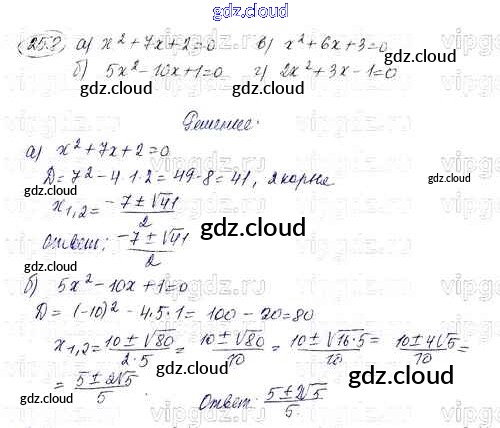 gdz.cloud
25.2 а) x² + 7x + 2 = 0 в) x² + 6x + 3 = 0
б) 5x² - 10x + 1 = 0 г) 2x² + 3x - 1 = 0
gdz.cloud gdz.cloud gdz.cloud
Решение.
а) x² + 7x + 2 = 0
D = 7² - 4·1·2 = 49 - 8 = 41, 2 корня
gdz.cloud
x₁,₂ = (-7 ± √41)/2
gdz.cloud
Ответ: (-7 ± √41)/2
б) 5x² - 10x + 1 = 0
D = (-10)² - 4·5·1 = 100 - 20 = 80
x₁,₂ = (10 ± √80)/(2·5) = (10 ± √80)/10 = (10 ± √(16·5))/10 = (10 ± 4√5)/10 =
= (5 ± 2√5)/5.
gdz.cloud
Ответ: (5 ± 2√5)/5.
gdz.cloud